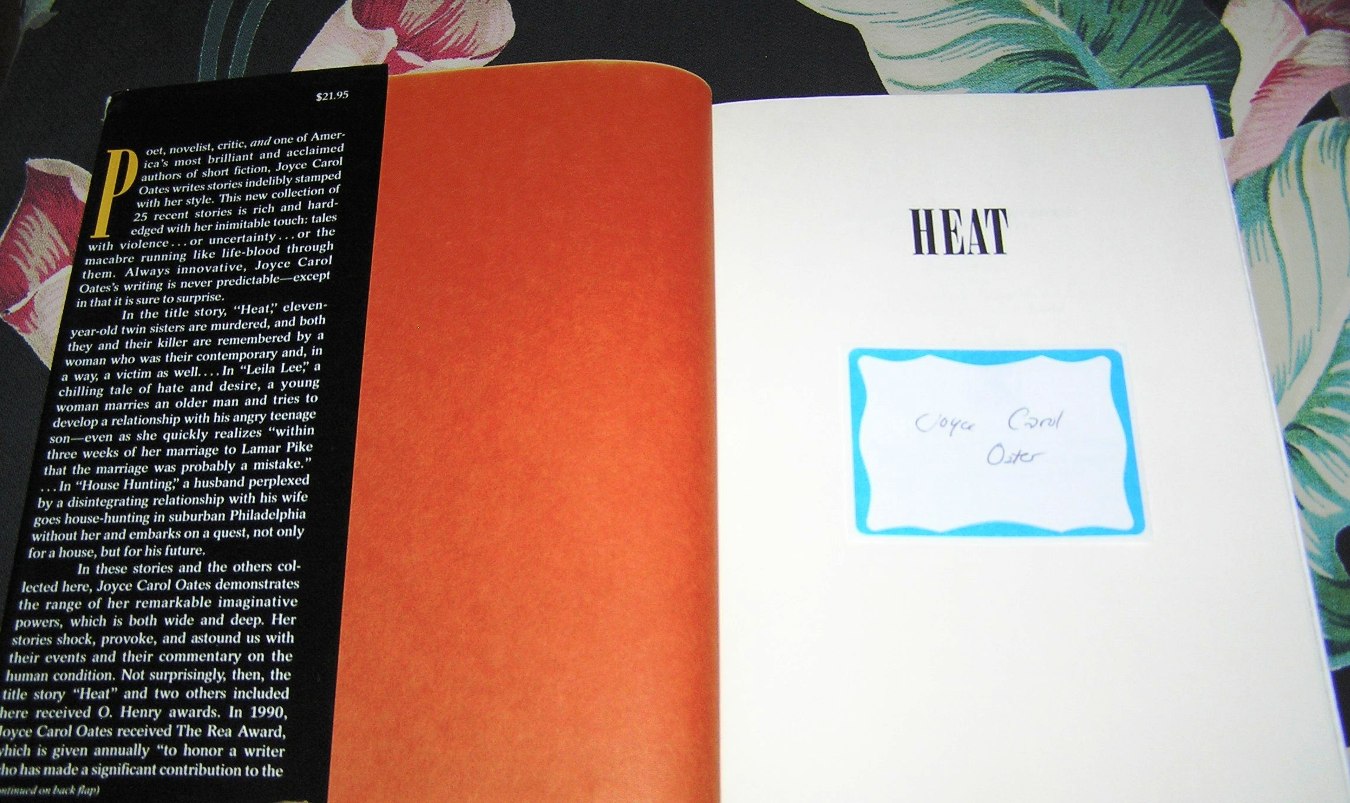 $21.95
Poet, novelist, critic, and one of Amer-
ica's most brilliant and acclaimed
authors of short fiction, Joyce Carol
Oates writes stories indelibly stamped
with her style. This new collection of
25 recent stories is rich and hard-
edged with her inimitable touch: tales
with violence...or uncertainty...or the
macabre running like life-blood through
them. Always innovative, Joyce Carol
Oates's writing is never predictable—except
in that it is sure to surprise.
In the title story, "Heat," eleven-
year-old twin sisters are murdered, and both
they and their killer are remembered by a
woman who was their contemporary and, in
a way, a victim as well....In "Leila Lee," a
chilling tale of hate and desire, a young
woman marries an older man and tries to
develop a relationship with his angry teenage
son—even as she quickly realizes "within
three weeks of her marriage to Lamar Pike
that the marriage was probably a mistake."
...In "House Hunting," a husband perplexed
by a disintegrating relationship with his wife
goes house-hunting in suburban Philadelphia
without her and embarks on a quest, not only
for a house, but for his future.
In these stories and the others col-
lected here, Joyce Carol Oates demonstrates
the range of her remarkable imaginative
powers, which is both wide and deep. Her
stories shock, provoke, and astound us with
their events and their commentary on the
human condition. Not surprisingly, then, the
title story "Heat" and two others included
here received O. Henry awards. In 1990,
Joyce Carol Oates received The Rea Award,
which is given annually "to honor a writer
who has made a significant contribution to the
(continued on back flap)
HEAT
Joyce Carol
Oster